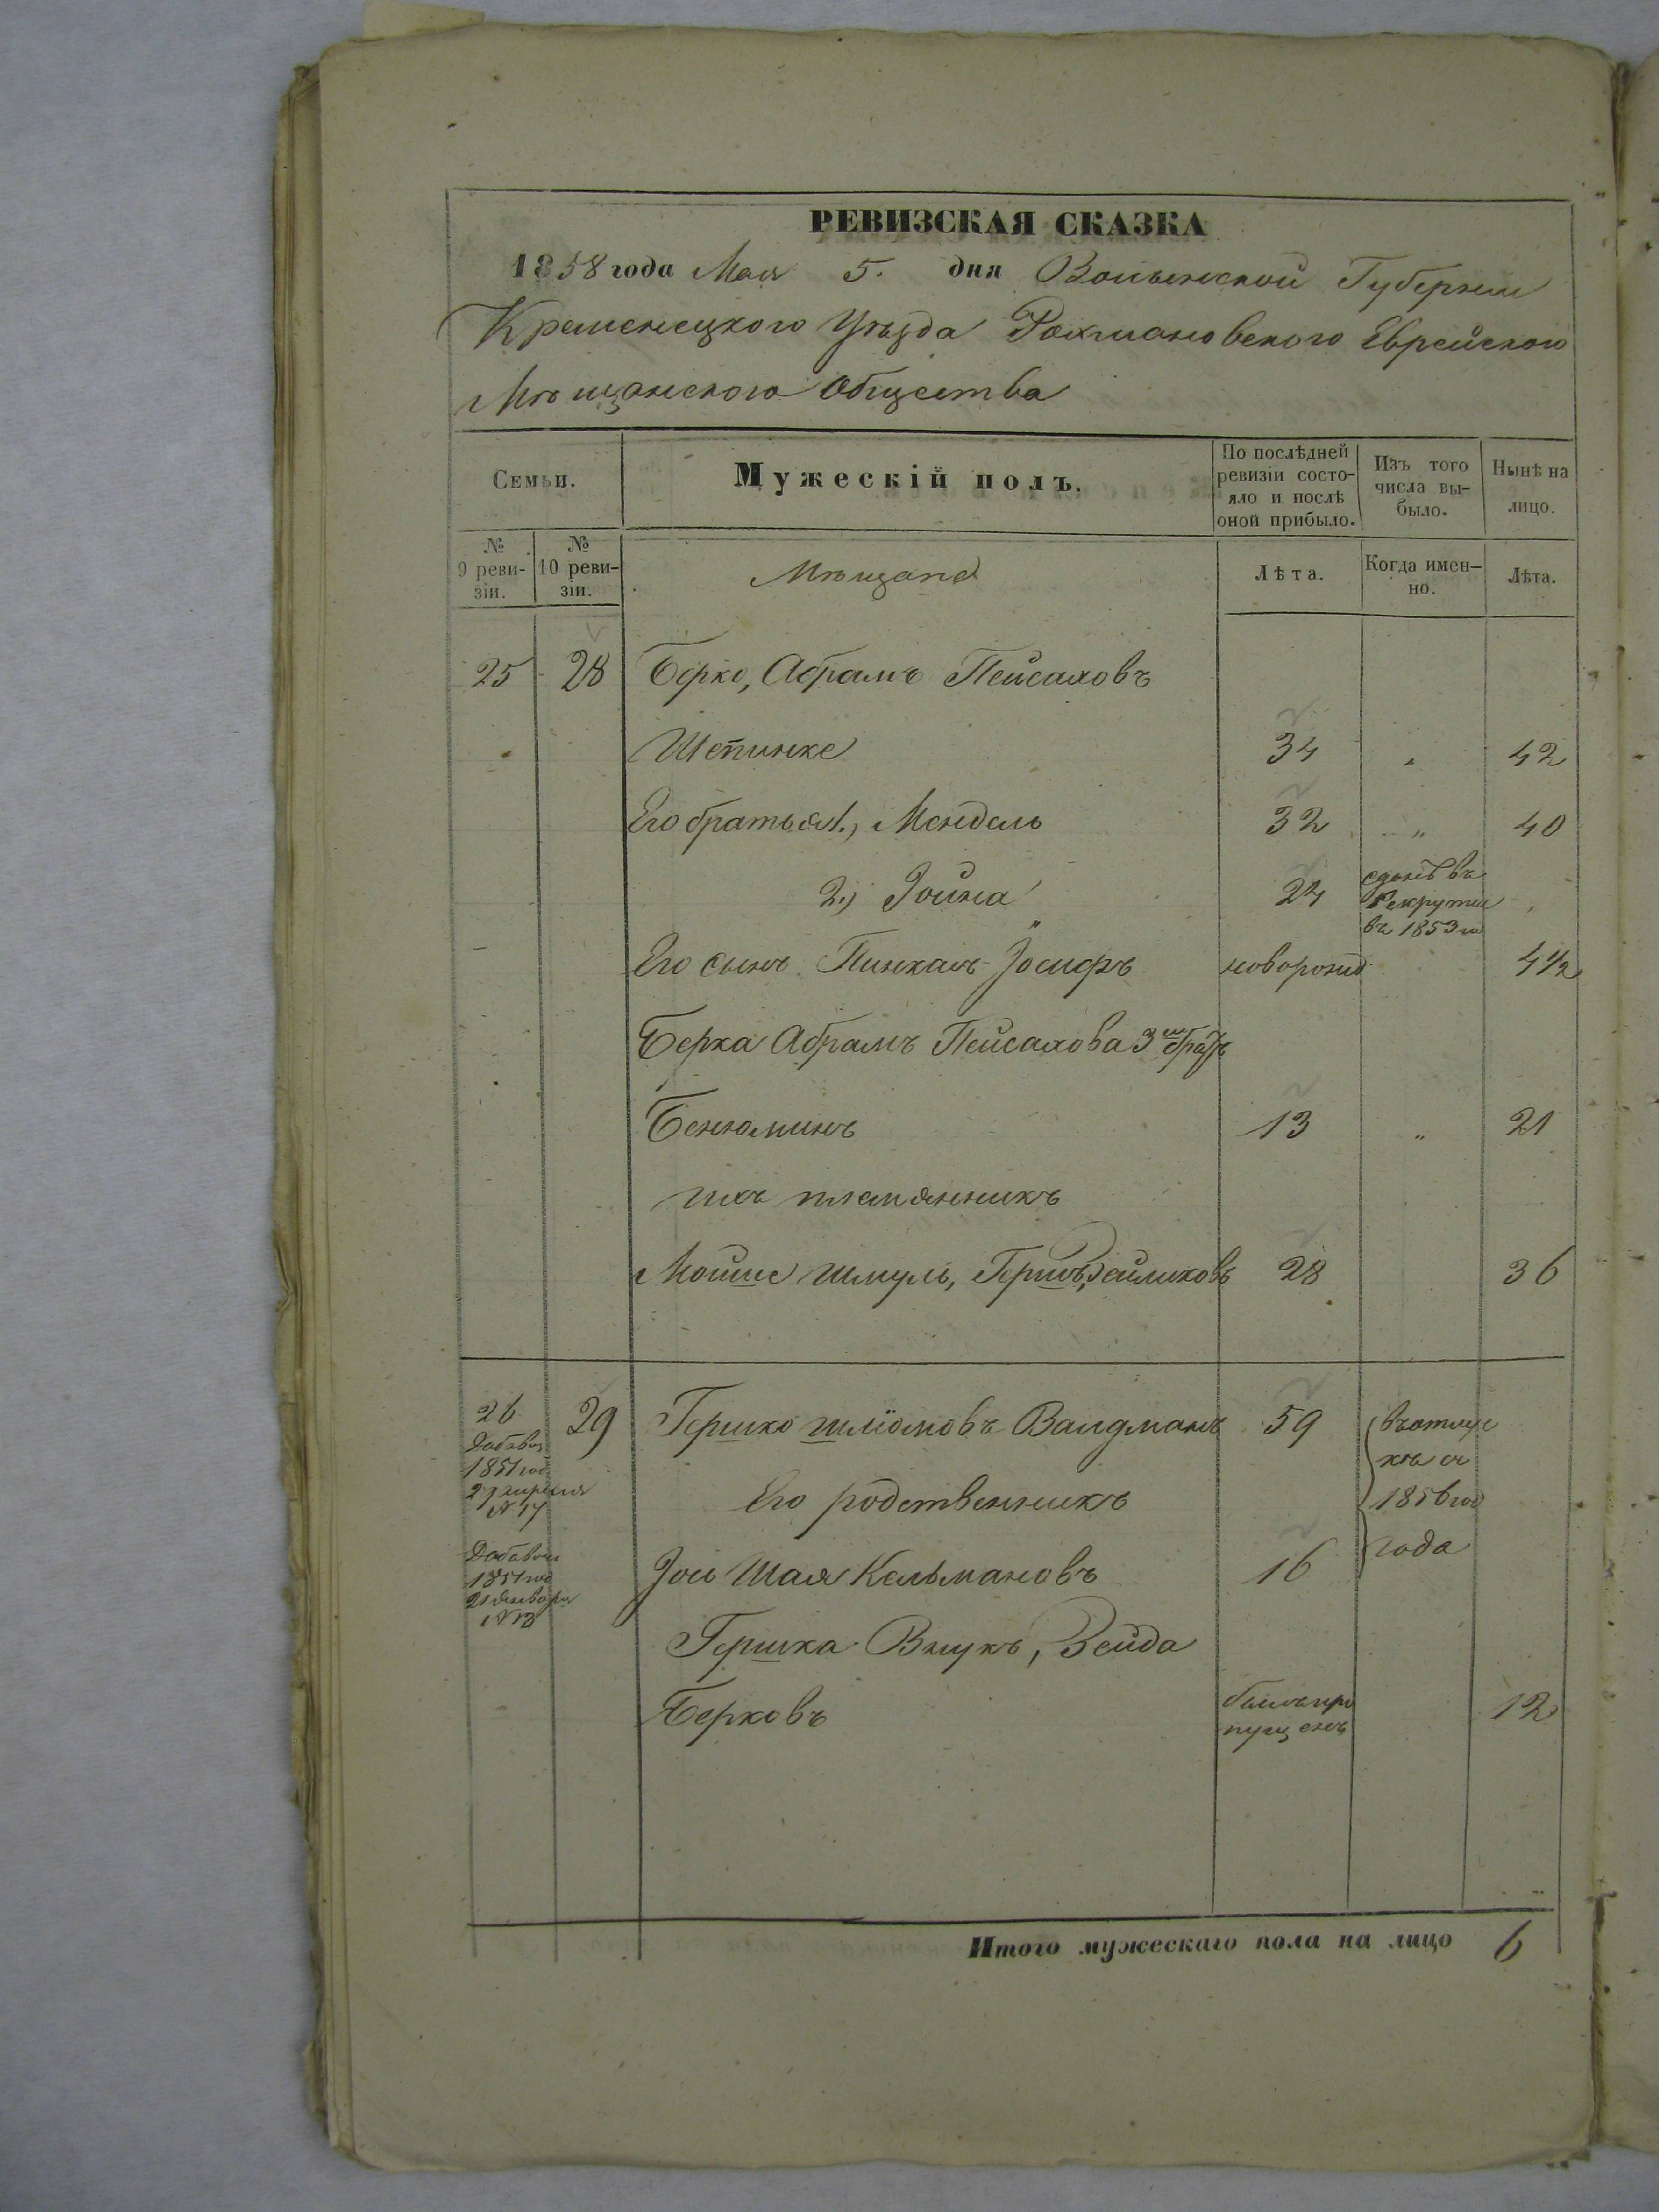 РЕВИЗСКАЯ СКАЗКА
1858 года Мая 5. дня Волынской Губернии
Кременецкого Уѣзда Рохмановского Еврейского
Мѣщанского Общества
Семьи.
Мужескій полъ.
По послѣдней ревизіи состояло и послѣ оной прибыло.
Изъ того числа выбыло.
Нынѣ на лицо.
№ 9 ревизіи.
№ 10 ревизіи.
Мѣщане
Лѣта.
Когда именно.
Лѣта.
25 28 Берко, Абрамъ Пейсаховъ
Штейнике 34 „ 42
Его братья 1., Мендель 32 „ 40
2.) Іойна 24 сданъ въ Рекруты въ 1853 го
Его сынъ Пинхас Іосифъ новорожд 4 1/2
Берка Абрамъ Пейсахова 3й братъ
Бенюминъ 13 „ 21
ихъ племянникъ
Мойше Шмуль, Гершъ, Зейликовъ 28 36
26 29 Гершко Шліомовъ Валдманъ 59
Добавоч
1851 год
27 апреля
№ 17
въ отлуч
кѣ съ
1856 год
года
Его родственникъ
Добавоч
1851 год
21 января
№ 13
Іось Шая Кельмановъ 16
Гершка Внукъ, Зейда
Берковъ былъ про
пущенъ 12
Итого мужескаго пола на лицо 6